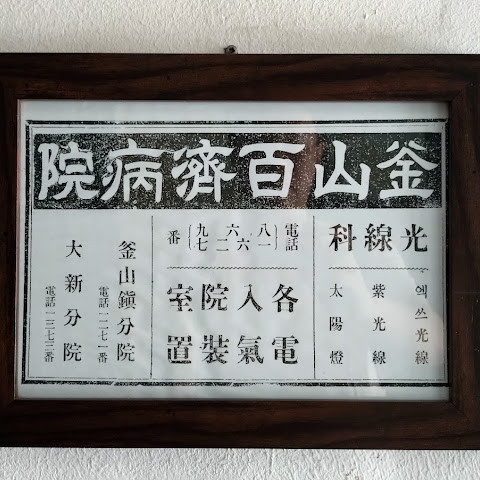 釜山百濟病院
光線科
엑쓰光線
紫光線
太陽燈
電話
八六六九
一六二七
番
各入院室
電氣裝置
釜山鎭分院
電話一二七一番
大新分院
電話一三七三番